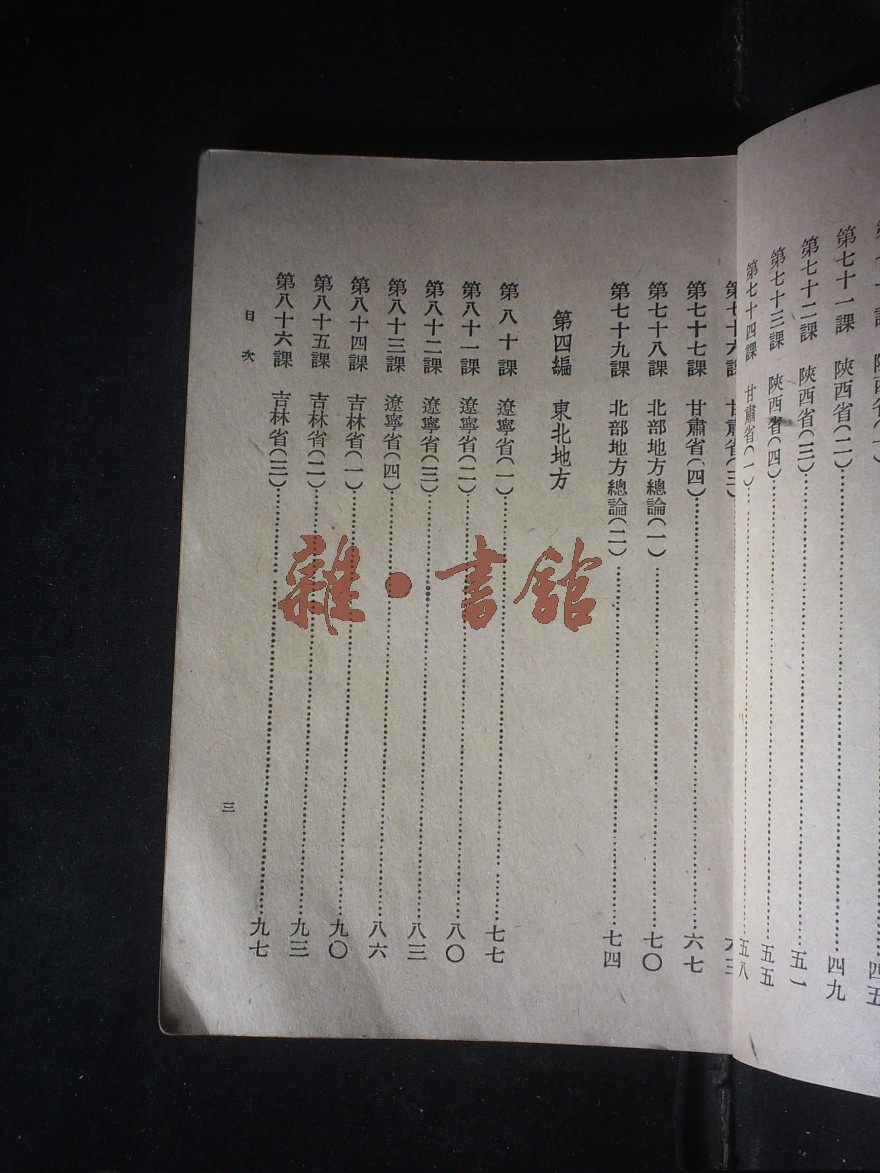 陝西省(一)⋯⋯四五
第七十一課 陝西省(二)⋯⋯四九
第七十二課 陝西省(三)⋯⋯五一
第七十三課 陝西省(四)⋯⋯五五
第七十四課 甘肅省(一)⋯⋯五八
第七十六課 甘肅省(三)⋯⋯六三
第七十七課 甘肅省(四)⋯⋯六七
第七十八課 北部地方總論(一)⋯⋯七〇
第七十九課 北部地方總論(二)⋯⋯七四
第四編 東北地方
第八十課 遼寧省(一)⋯⋯七七
第八十一課 遼寧省(二)⋯⋯八〇
第八十二課 遼寧省(三)⋯⋯八三
第八十三課 遼寧省(四)⋯⋯八六
第八十四課 吉林省(一)⋯⋯九〇
第八十五課 吉林省(二)⋯⋯九三
第八十六課 吉林省(三)⋯⋯九七
目次
三
雜·書館